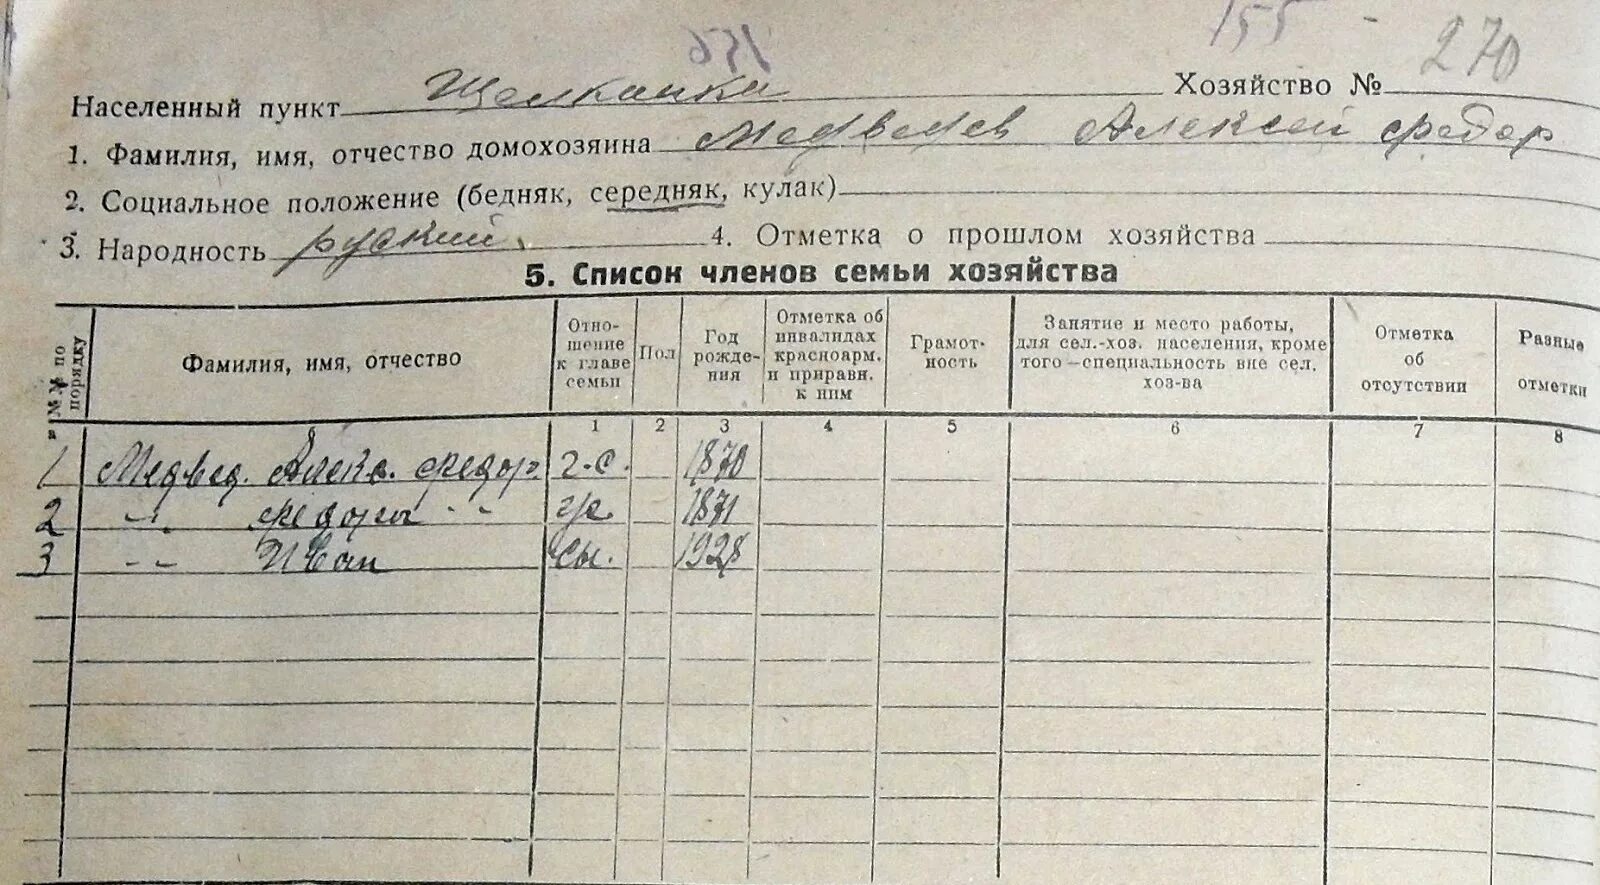 155 - 270
156
Населенный пункт Щелканка Хозяйство №
1. Фамилия, имя, отчество домохозяина Медведев Алексей Федор
2. Социальное положение (бедняк, середняк, кулак)
3. Народность руский. 4. Отметка о прошлом хозяйства
5. Список членов семьи хозяйства
№№ по порядку Фамилия, имя, отчество Отно-шение к главе семьи Пол Год рожде-ния Отметка об инвалидах красноарм. и приравн. к ним Грамот-ность Занятие и место работы, для сел.-хоз. населения, кроме того—специальность вне сел. хоз-ва Отметка об отсутствии Разные отметки
1 2 3 4 5 6 7 8
1 Медвед. Алекс. Федор. г.с. 1870
2 -"- -"- 1871
3 -"- Иван сы. 1928